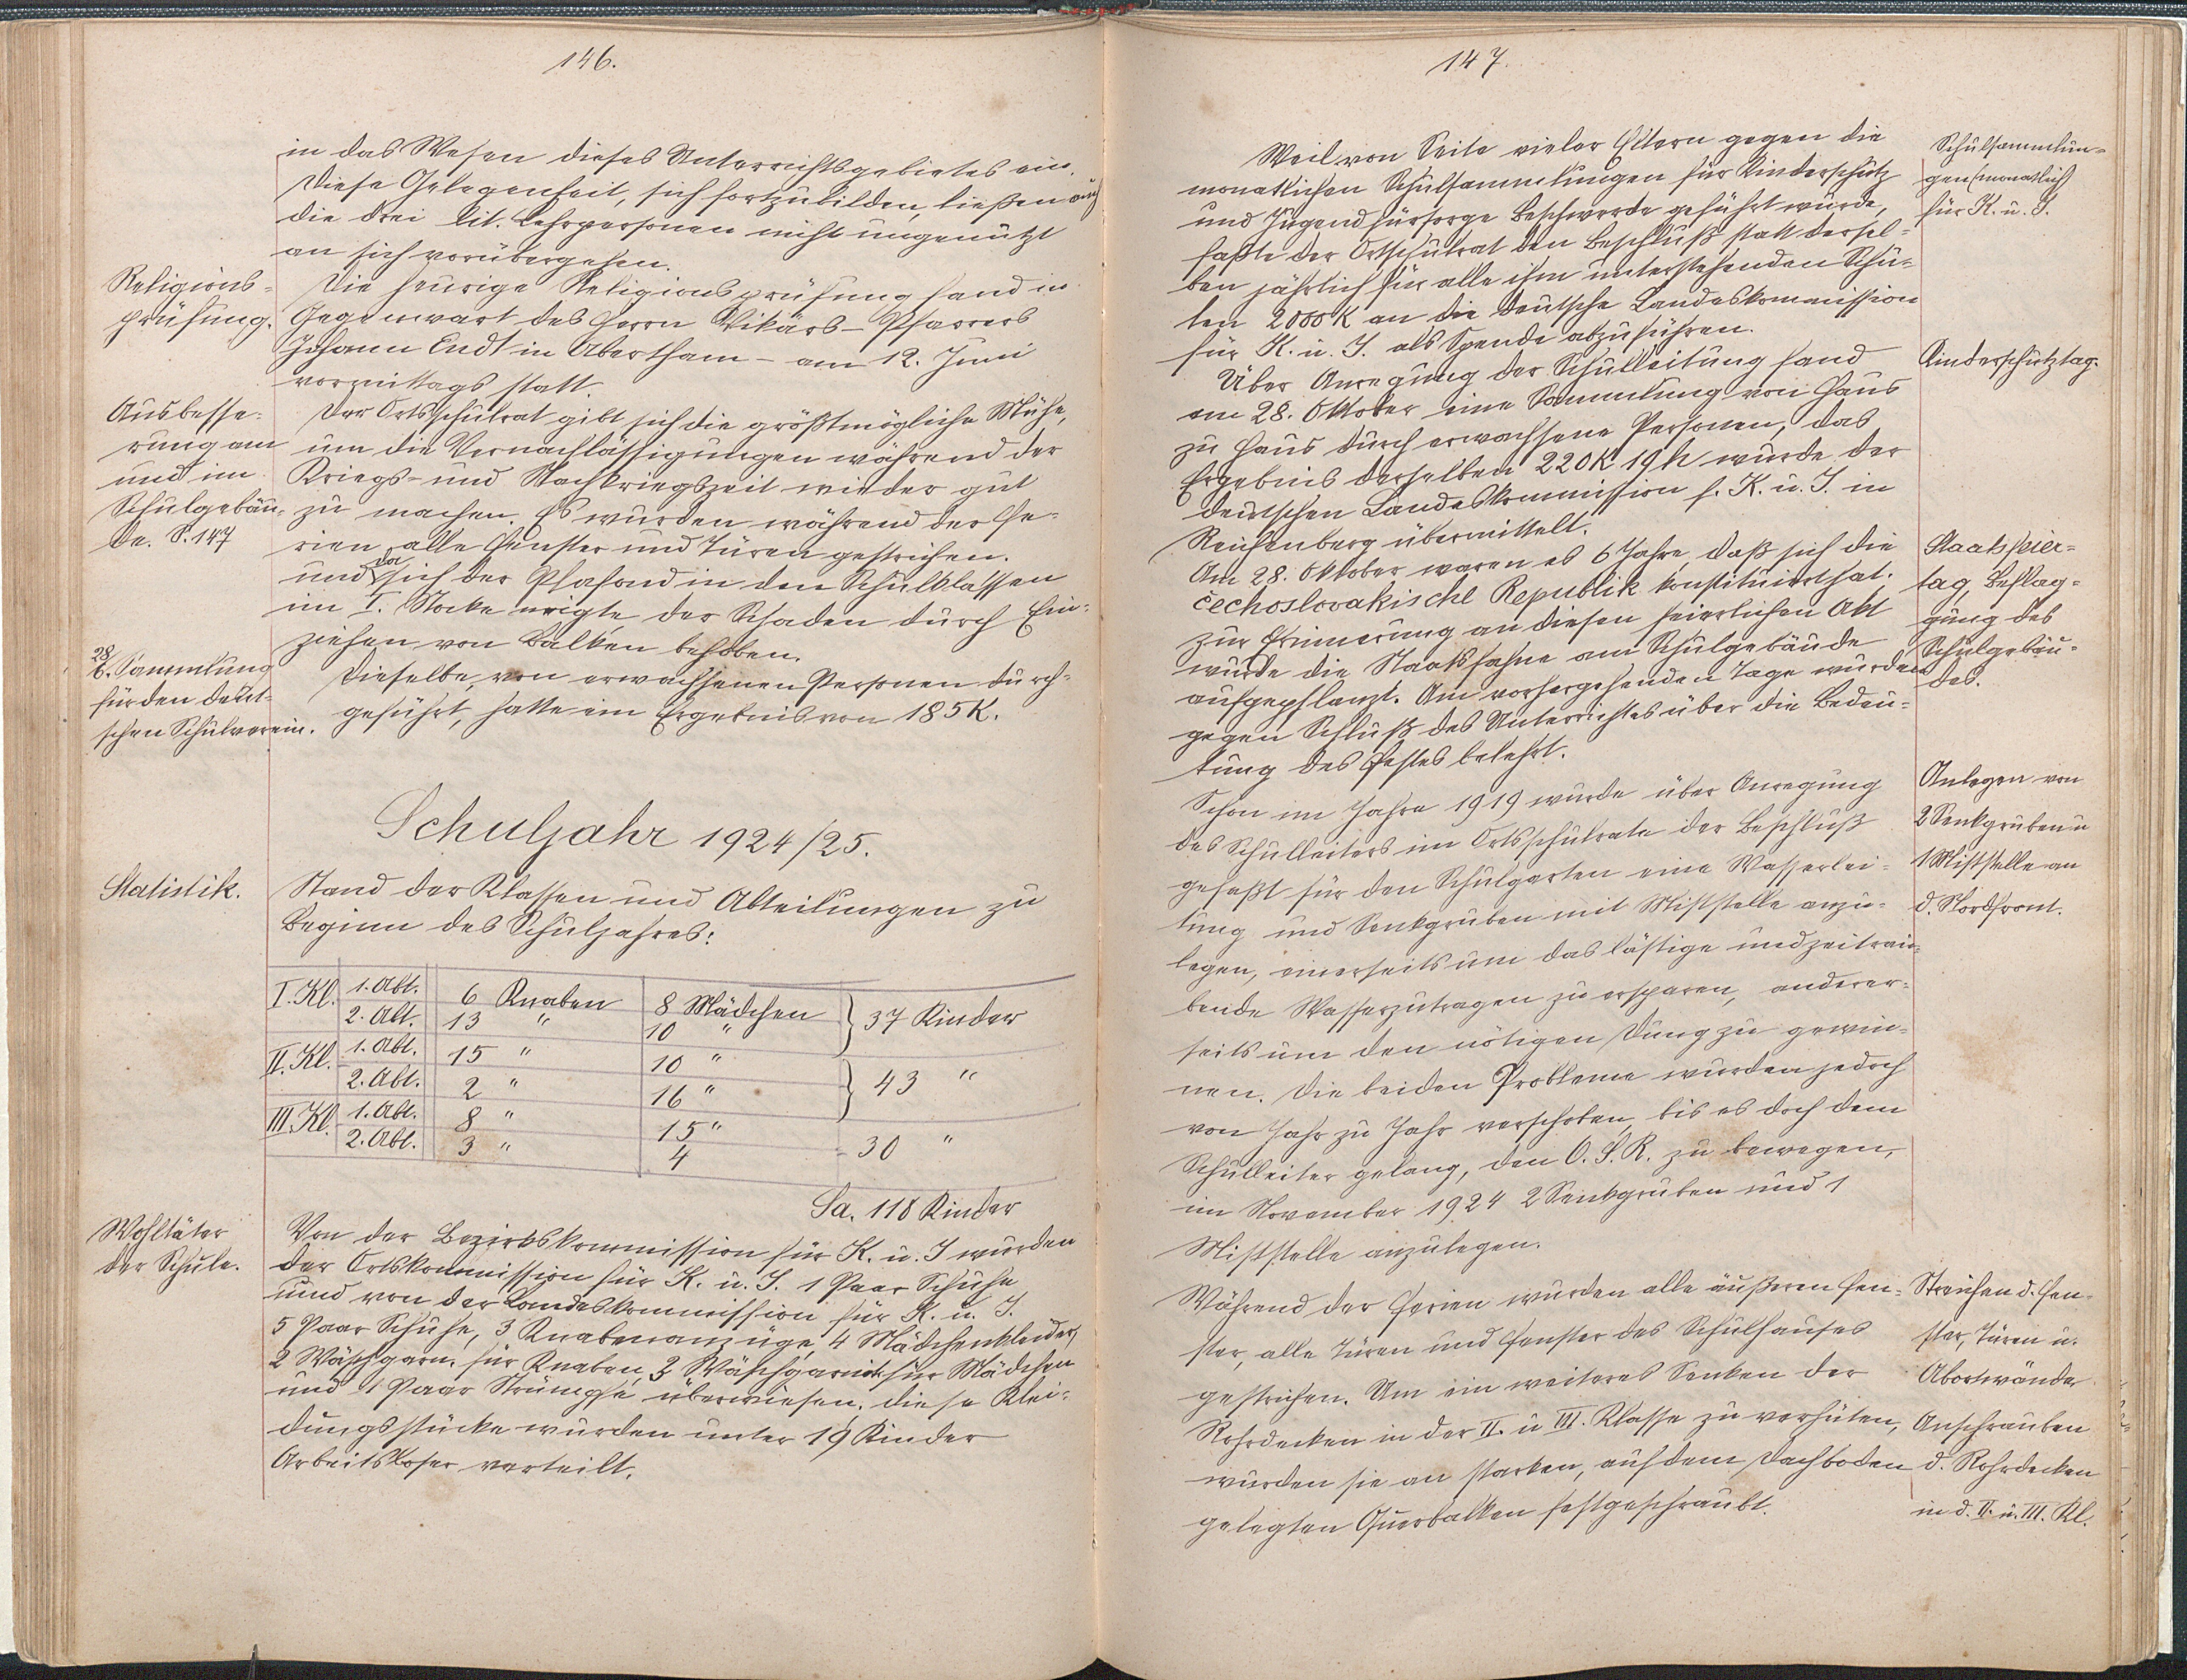 146.
in das Wesen dieses Unterrichtsgebietes ein.
Diese Gelegenheit, sich fortzubilden, ließen auch
die drei lit. Lehrpersonen nicht ungenützt
an sich vorübergehen.
Religions-
prüfung.
Die heurige Religionsprüfung fand in
Gegenwart des Herrn Vikärs-Pfarrers
Johann Endt in Abertham - am 12. Juni
vormittags statt.
Ausbesse-
rung am
und im
Schulgebäu-
de. S. 147
Der Ortsschulrat gibt sich die größtmögliche Mühe,
um die Vernachlässigungen während der
Kriegs- und Nachkriegszeit wieder gut
zu machen. Es wurden während der Fe-
rien alle Fenster und Türen gestrichen.
und da sich der Plafond in den Schulklassen
im I. Stocke neigte der Schaden durch Ein-
ziehen von Balken behoben.
28/6. Sammlung
für den deut-
schen Schulverein.
Dieselbe, von erwachsenen Personen durch-
geführt, hatte ein Ergebnis von 185 K.
Schuljahr 1924/25.
Statistik.
Stand der Klassen und Abteilungen zu
Beginn des Schuljahres:
I. Kl. 1. Abt. 6 Knaben 8 Mädchen } 37 Kinder
2. Abt. 13 " 10 "
II. Kl. 1. Abt. 15 " 10 " } 43 "
2. Abt. 2 " 16 "
III. Kl. 1. Abt. 8 " 15 "
2. Abt. 3 " 4 - 30 "
Sa. 118 Kinder
Wohltäter
der Schule.
Von der Bezirkskommission für K. u. J wurden
der Ortskommission für K. u. J. 1 Paar Schuhe
und von der Landeskommission für K. u. J.
5 Paar Schuhe, 3 Knabenanzüge, 4 Mädchenkleider,
2 Wäschgarn. für Knaben, 3 Wäschgarnit. für Mädchen
und 1 Paar Strümpfe überwiesen. diese Klei-
dungsstücke wurden unter 19 Kinder
Arbeitsloser verteilt.
147.
Weil von Seite vieler Eltern gegen die
monatlichen Schulsammlungen für Kinderschutz
und Jugendfürsorge Beschwerde geführt wurde,
faßte der Ortschulrat den Beschluß statt dersel-
ben jährlich für alle ihm unterstehenden Schu-
len 2000 K an die deutsche Landeskommission
für K. u. J. als Spende abzuführen.
Schulsammlun-
gen (monatlich)
für K. u. J.
Über Anregung der Schulleitung fand
am 28. Oktober eine Sammlung von Haus
zu Haus durch erwachsene Personen, das
Ergebnis derselben 220 K 19 h wurde der
deutschen Landeskommission f. K. u. J. in
Reichenberg übermittelt.
Kinderschutztag.
Am 28. Oktober waren es 6 Jahre, daß sich die
čechoslovakische Republik konstituiert hat.
Zur Erinnerung an diesen feierlichen Akt
wurde die Staatsfahne am Schulgebäude
aufgepflanzt. Am vorhergehenden Tage wurden
gegen Schluß des Unterrichtes über die Bedeu-
tung des Festes belehrt.
Staatsfeier-
tag, Beflag-
gung des
Schulgebäu-
des.
Schon im Jahre 1919 wurde über Anregung
des Schulleiters im Ortsschulrate der Beschluß
gefaßt für den Schulgarten eine Wasserlei-
tung und Senkgruben mit Miststelle anzu-
legen, einerseits um das lästige und zeitrau-
bende Wasserzutragen zu ersparen, anderer-
seits um den nötigen Dung zu gewin-
nen. Die beiden Probleme wurden jedoch
von Jahr zu Jahr verschoben, bis es doch dem
Schulleiter gelang, den O. S. R. zu bewegen,
im November 1924 2 Senkgruben und 1
Miststelle anzulegen.
Anlegen von
2 Senkgruben u
1 Miststelle an
d. Nordfront.
Während der Ferien wurden alle äußeren Fen-
ster, alle Türen und Fenster des Schulhauses
gestrichen. Um ein weiteres Senken der
Rohrdecken in der II. u III. Klasse zu verhüten,
wurden sie an starken, auf dem Dachboden
gelegten Querbalken festgeschraubt.
Streichen d. Fen-
ster, Türen u.
Abortwände
Anschrauben
d. Rohrdecken
in d. II. u. III. Kl.